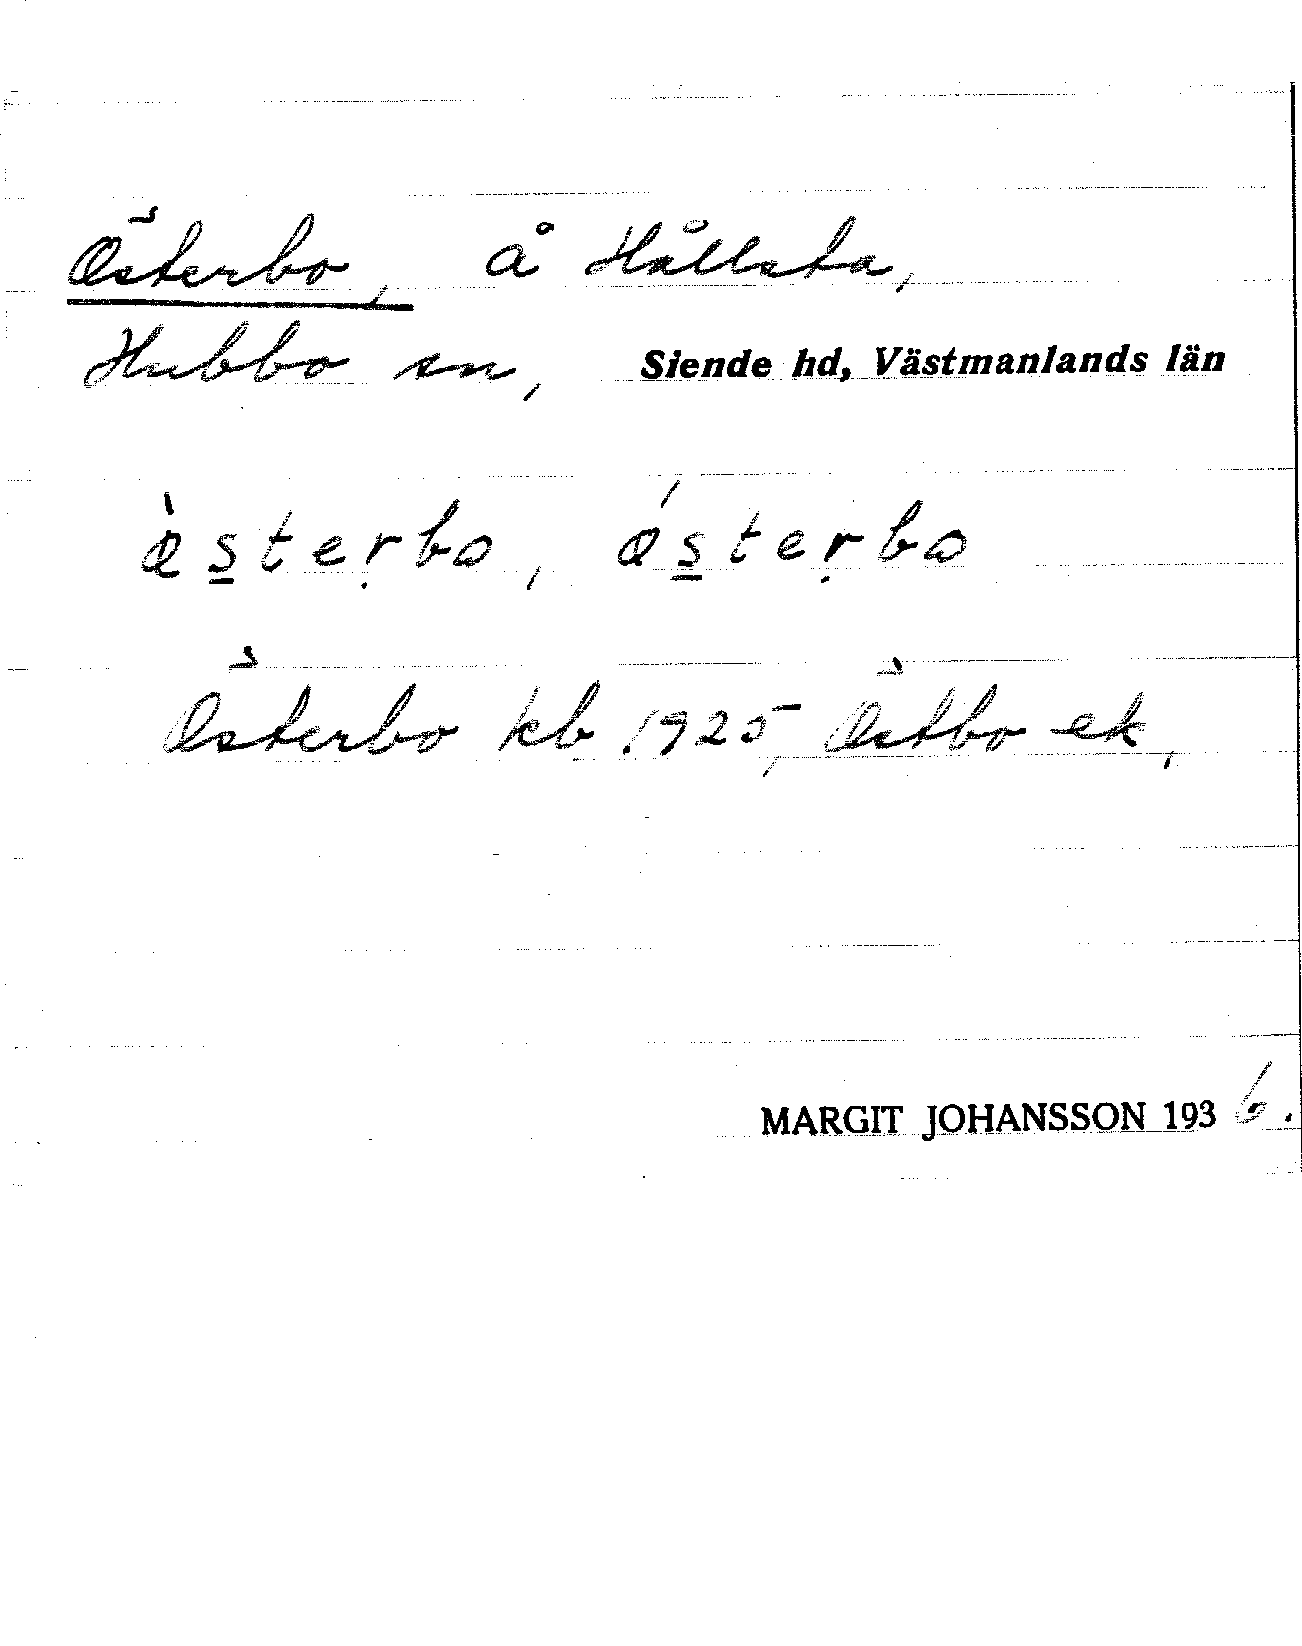 Österbo, å Hållsta,
Hubbo sn, Siende hd, Västmanlands län
ø̀s̱teṛbo, ǿs̱teṛbo
Österbo kb 1925, Östbo ek,
MARGIT JOHANSSON 1936.